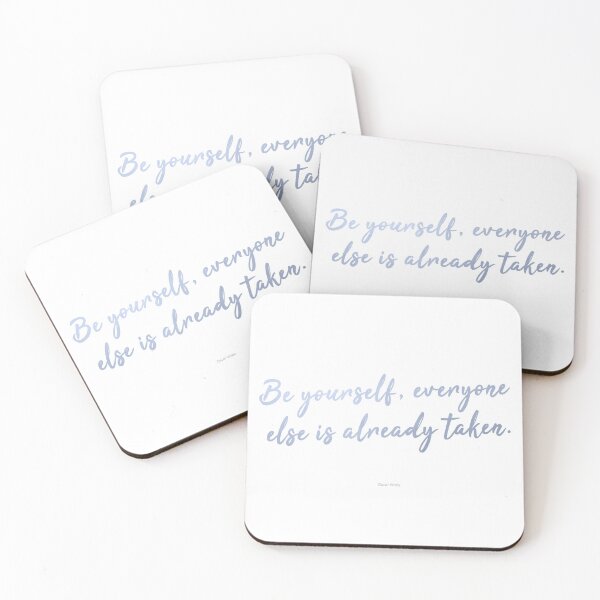 Be yourself, everyone
else is already ta
Be yourself, everyone
else is already taken.
Be yourself, everyone
else is already taken.
Oscar Wilde
Be yourself, everyone
else is already taken.
Oscar Wilde